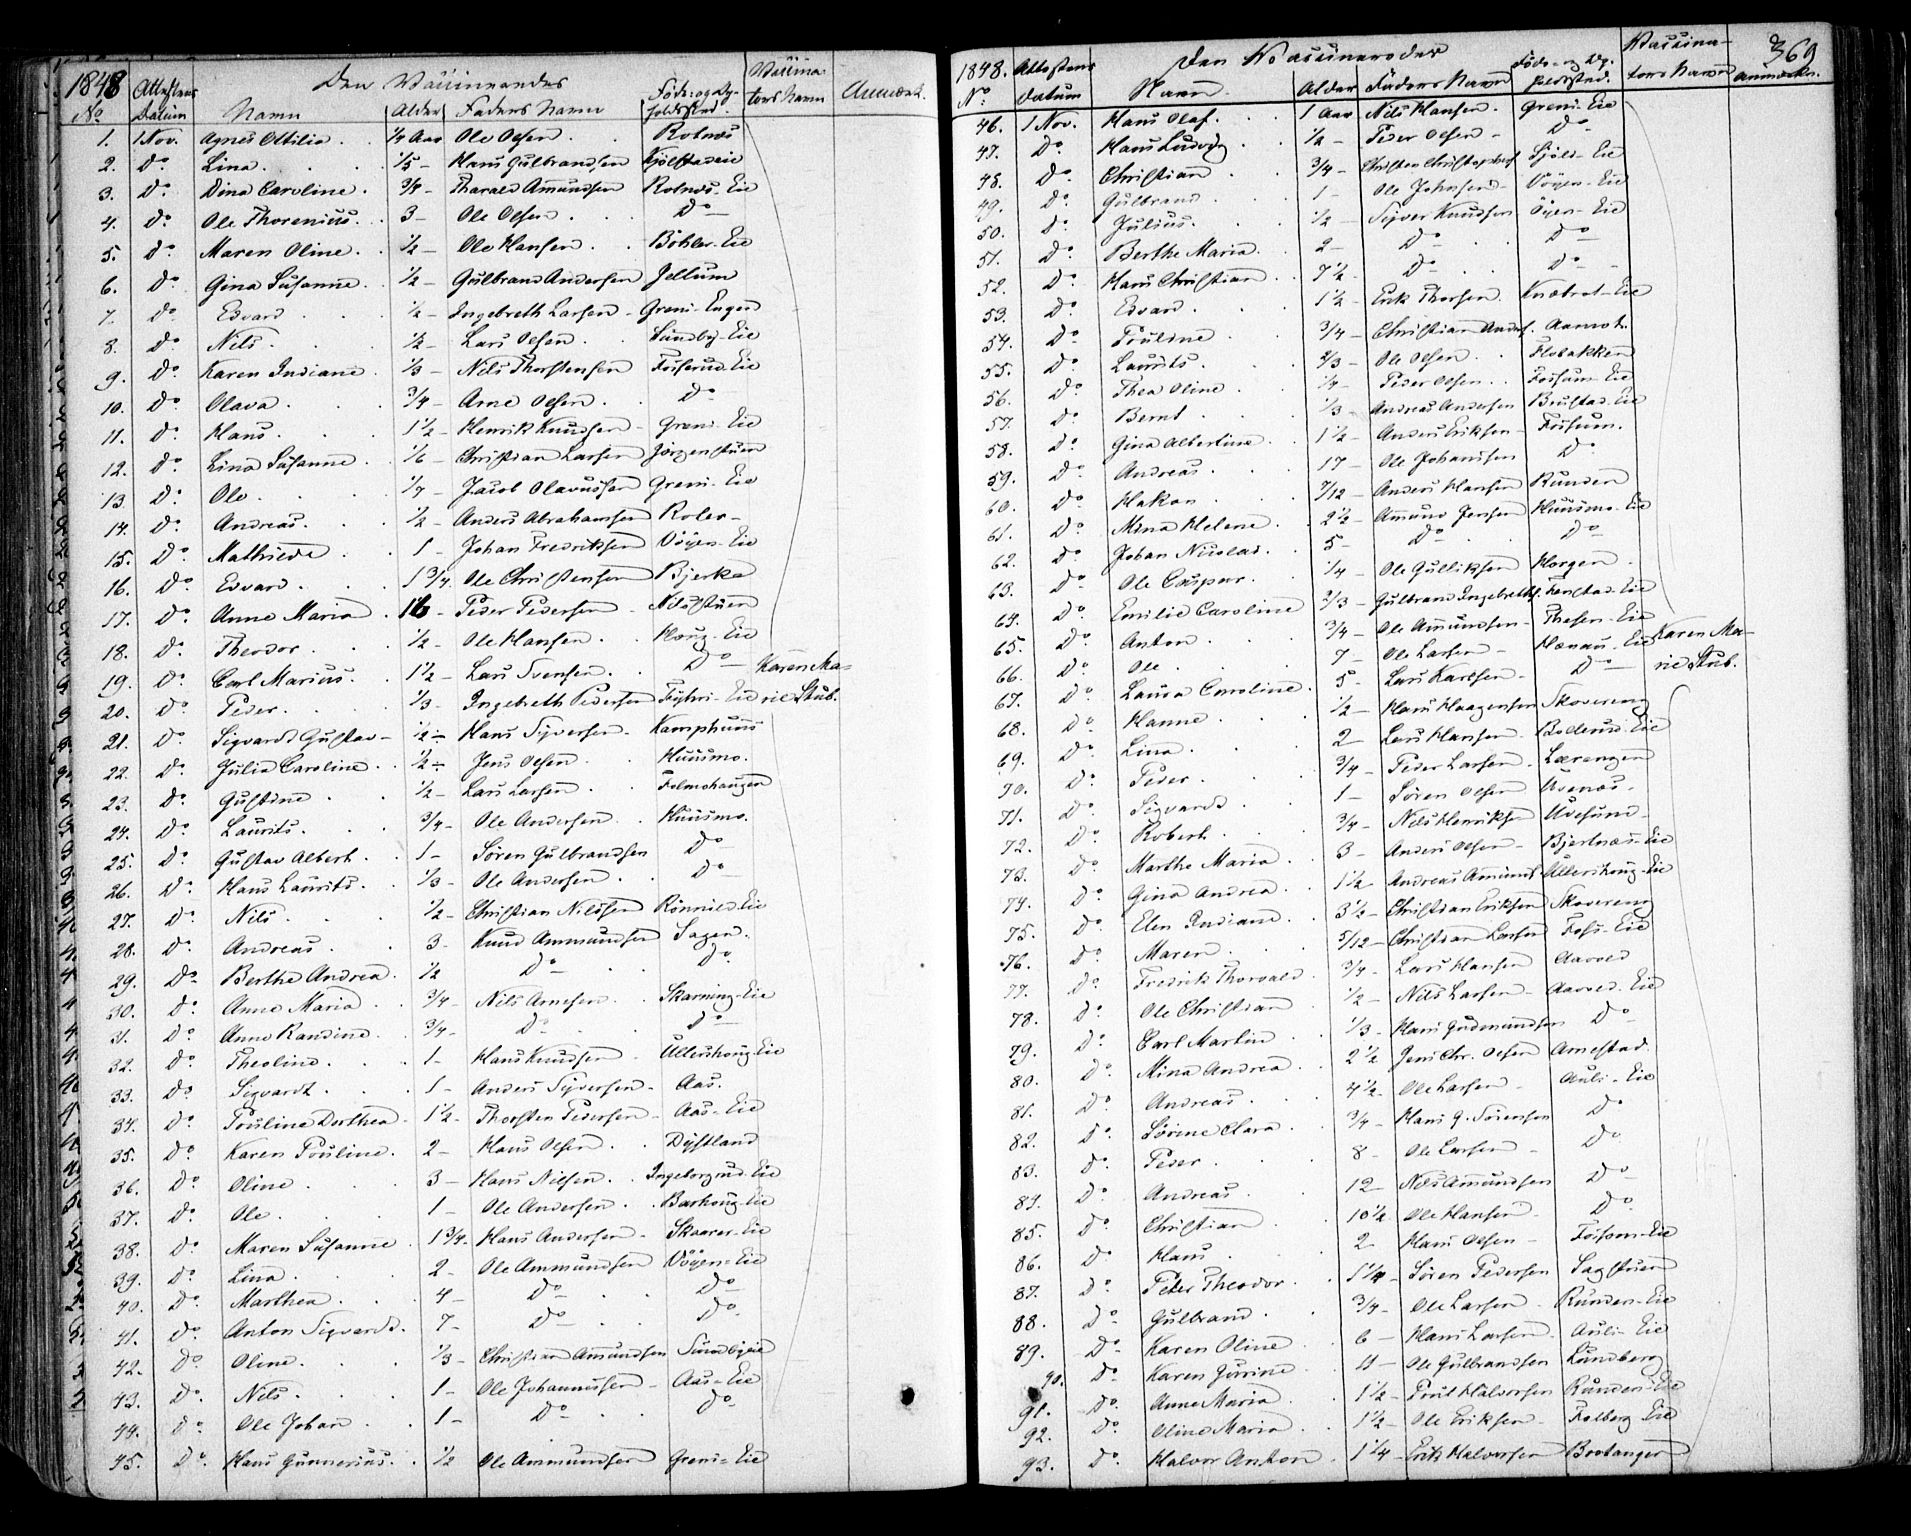 1848 Attestens Den Vaccineredes Vaccina-
No Datum Navn Alder Faders Navn Føde- og Op- holdssted. tors Navn Anmærk.
1. 1 Nov. Agnes Ottilia . . 1/4 Aar Ole Olsen . Rotnæs
2. Do. Lina . . . 1/5 - Hans Gulbrandsen Kjølstadeie
3. Do. Dina Caroline . 3/4 - Tharald Amundsen Rotnæs-Eie
4. Do. Ole Thorenius . . 3 - Ole Olsen . . Do
5. Do. Maren Oline . . 1/2 - Ole Hansen . . Böhler-Eie
6. Do. Gina Susanne . 1/2 - Gulbrand Andersen Jellum
7. Do. Edvard . . . 1/2 - Ingebreth Larsen - Greni-Engen
8. Do. Nils . . . 1/2 - Lars Olsen . . Sundby-Eie
9. Do. Karen Indiane . 1/3 - Nils Thorstensen Fosserud-Eie
10. Do. Olava . . . 3/4 - Arne Olsen . . Do
11. Do. Hans . . . 1 1/2 - Henrik Knudsen - Greni-Eie
12. Do. Lina Susanne . 1/6 - Christian Larsen Jörgenstuen
13. Do. Ole . . . 1/7 - Jacob Olavussen Greni-Eie
14. Do. Andreas . . . 1/2 - Anders Abrahamsen Roler -
15. Do. Mathilde . . 1 - Johan Fredriksen Vöyen-Eie
16. Do. Edvard . . . 1 3/4 Ole Christensen Bjerke
17. Do. Anne Maria . 16 - Peder Pedersen - Nilsstuen
18. Do. Theodor . . . 1/2 - Ole Hansen . . Houg-Eie
19. Do. Carl Marius . . 1 1/2 - Lars Svensen . . Do Karen Ma-
20. Do. Peder . . . 1/3 - Ingebreth Pedersen Fyhri-Eie rie Stub.
21. Do. Sigvardt Gustav - 1/2 - Hans Syversen . Kamphuus
22. Do. Julia Caroline . . 1/2 - Jens Olsen . . Huusmo.
23. Do. Gustine . . 1/2 - Lars Larsen . . Folmohaugen
24. Do. Laurits . . . 3/4 - Ole Andersen . Huusmo.
25. Do. Gustav Albert . . 1 - Sören Gulbrandsen Do
26. Do. Hans Laurits . . 1/3 - Ole Andersen . . Do
27. Do. Nils . . . 1/2 - Christian Nilssen Rönnild-Eie
28. Do. Andreas . . . 3 - Knud Ammundsen Sagen.
29. Do. Berthe Andrea . 1/2 Do . . Do.
30. Do. Anne Maria . . 3/4 - Nils Arnesen . . Skarning-Eie
31. Do. Anne Randine . . 3/4 - Do . . Do
32. Do. Theoline . . . 1 - Hans Knudsen - Ullershoug-Eie
33. Do. Sigvardt . . . 1 - Anders Syversen - Aas.
34. Do. Pouline Dorthea . 1 1/2 - Thorsten Pedersen - Aas-Eie
35. Do. Karen Pouline . 2 - Hans Olsen . . Dystland
36. Do. Oline . . . 3 - Hans Nilsen . . Ingeborgrud-Eie
37. Do. Ole . . . 1 - Ole Andersen . . Barhoug-Eie
38. Do. Maren Susanne . 1 3/4 - Hans Andersen . Skaarer-Eie
39. Do. Lina . . . 2 - Ole Ammundsen Vöyen-Eie
40. Do. Marthea . . . 4 - Do . . Do
41. Do. Anton Sigvardt . 7 - Do . . Do.
42. Do. Oline . . . 1/3 - Christian Amundsen Sundbyeie
43. Do. Nils . . . 1 - Ole Johannessen - Aas-Eie
44. Do. Ole Johan . . 1 - Do . . Do.
45. Do. Hans Gunnerius . . 1/2 Ole Ammundsen Greni-Eie
369
1848. Attestens Den Vaccineredes Vaccina-
No. Datum Navn Alder Faders Navn Føde- og Op- holdssted. tors Navn Anmærkn.
46. 1 Nov. Hans Olaf . . . 1 Aar Nils Hansen . Greni-Eie
47. Do. Hans Ludvig . . 1/2 - Peder Olsen - Do
48. Do. Christian . . 3/4 - Christen Christophers. Kjöls-Eie
49. Do. Gulbrand . . . 1 - Ole Johnsen - Vöyen-Eie
50. Do. Julius . . . 1/2 - Syver Knudsen Öyen-Eie
51. Do. Berthe Maria . . 2 - Do . . Do
52. Do. Hans Christian . . 7 1/2 - Do . . Do
53. Do. Edvard . . . 1 1/2 - Erik Thorsen . Knæbrot-Eie
54. Do. Pouline . . 3/4 - Christian Anders. Aamot.
55. Do. Laurits . . . 2/3 - Ole Olsen . . Flobakken
56. Do. Thea Oline . . 1/4 - Peder Olsen . . Fossum-Eie
57. Do. Bernt . . . 1/3 - Andreas Andersen Brustad-Eie
58. Do. Gina Albertine . . 1 1/2 - Anders Eriksen - Fossum.
59. Do. Andreas . . . 17 - Ole Johansen Do
60. Do. Hakon . . . 7/12 - Anders Hansen Runden
61. Do. Mina Helene . . 2 1/2 - Amund Jensen Huusmo-Eie
62. Do. Johan Nicolai . . 5 - Do . . Do
63. Do. Ole Caspar . . . 1/4 - Ole Gulliksen Horgen .
64. Do. Emilie Caroline 2/3 - Gulbrand Ingebretsen -Eie
65. Do. Anton . . . 3/4 - Ole Amundsen - Thesen-Eie Karen Ma-
66. Do. Ole . . . 7 - Ole Larsen - Hænau-Eie rie Stub.
67. Do. Laura Caroline . . 5 - Lars Karlsen - Do
68. Do. Hanne . . . 1/2 - Hans Haagensen Skovereng
69. Do. Lina . . . 2 - Lars Hansen . Bollerud-Eie
70. Do. Peder . . . 3/4 - Peder Larsen . Lærengen
71. Do. Sigvardt . . . 1 - Sören Olsen Uvenæs.
72. Do. Robert . . . 3/4 - Nils Henriksen Uvesund.
73. Do. Marthe Maria . . 3 - Anders Olsen - Bjertnæs-Eie
74. Do. Gina Andrea . . 1 1/2 - Andreas Amunds. Ullershoug-Eie
75. Do. Elen Indiane . . 3 1/2 - Christian Eriksen Skovereng
76. Do. Maren . . . 5/12 - Christian Larsen Foss-Eie
77. Do. Fredrik Thorvald . 3/4 - Lars Hansen Aaroed
78. Do. Ole Christian . 1/2 - Nils Larsen - Aaroed-Eie
79. Do. Carl Martin . . 1/3 - Hans Gudmundsen Do
80. Do. Mina Andrea . . 2 1/2 Jens Chr. Olsen Arnestad.
81. Do. Andreas . . . 4 1/2 - Ole Larsen - Auli-Eie
82. Do. Sörine Clara . . 3/4 - Hans G. Sörensen Do
83. Do. Peder . . . 8 - Ole Larsen - Do
84. Do. Andreas . . . 12 - Nils Amundsen Do
85. Do. Christian . . . 10 1/2 Ole Hansen - Do
86. Do. Hans . . . 2 - Hans Olsen - Fossum-Eie
87. Do. Peter Theodor . . 1 1/4 - Sören Pedersen Sagstuen
88. Do. Gulbrand . . 3/4 - Ole Larsen - Runden-Eie
89. Do. Karen Oline . . 6 - Hans Larsen - Auli-Eie
90. Do. Karen Jörine . . 11 - Ole Gulbrandsen Lundberg
91. Do. Anne Maria . . 1 1/2 - Poul Halvorsen Runden-Eie
92. Do. Oline Maria . . 1 1/2 - Ole Eriksen - Folberg-Eie
93. Do. Halvor Anton . . 1 1/4 - Erik Halvorsen Brotangen